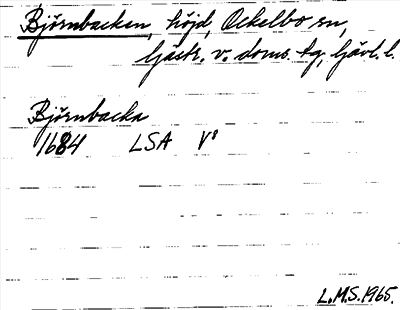 Björnbacken, höjd, Ockelbo sn,
Gästr. v. doms. tg, Gävl. l.
Björnbacka
1684 LSA V⁸
L.M.S. 1965.